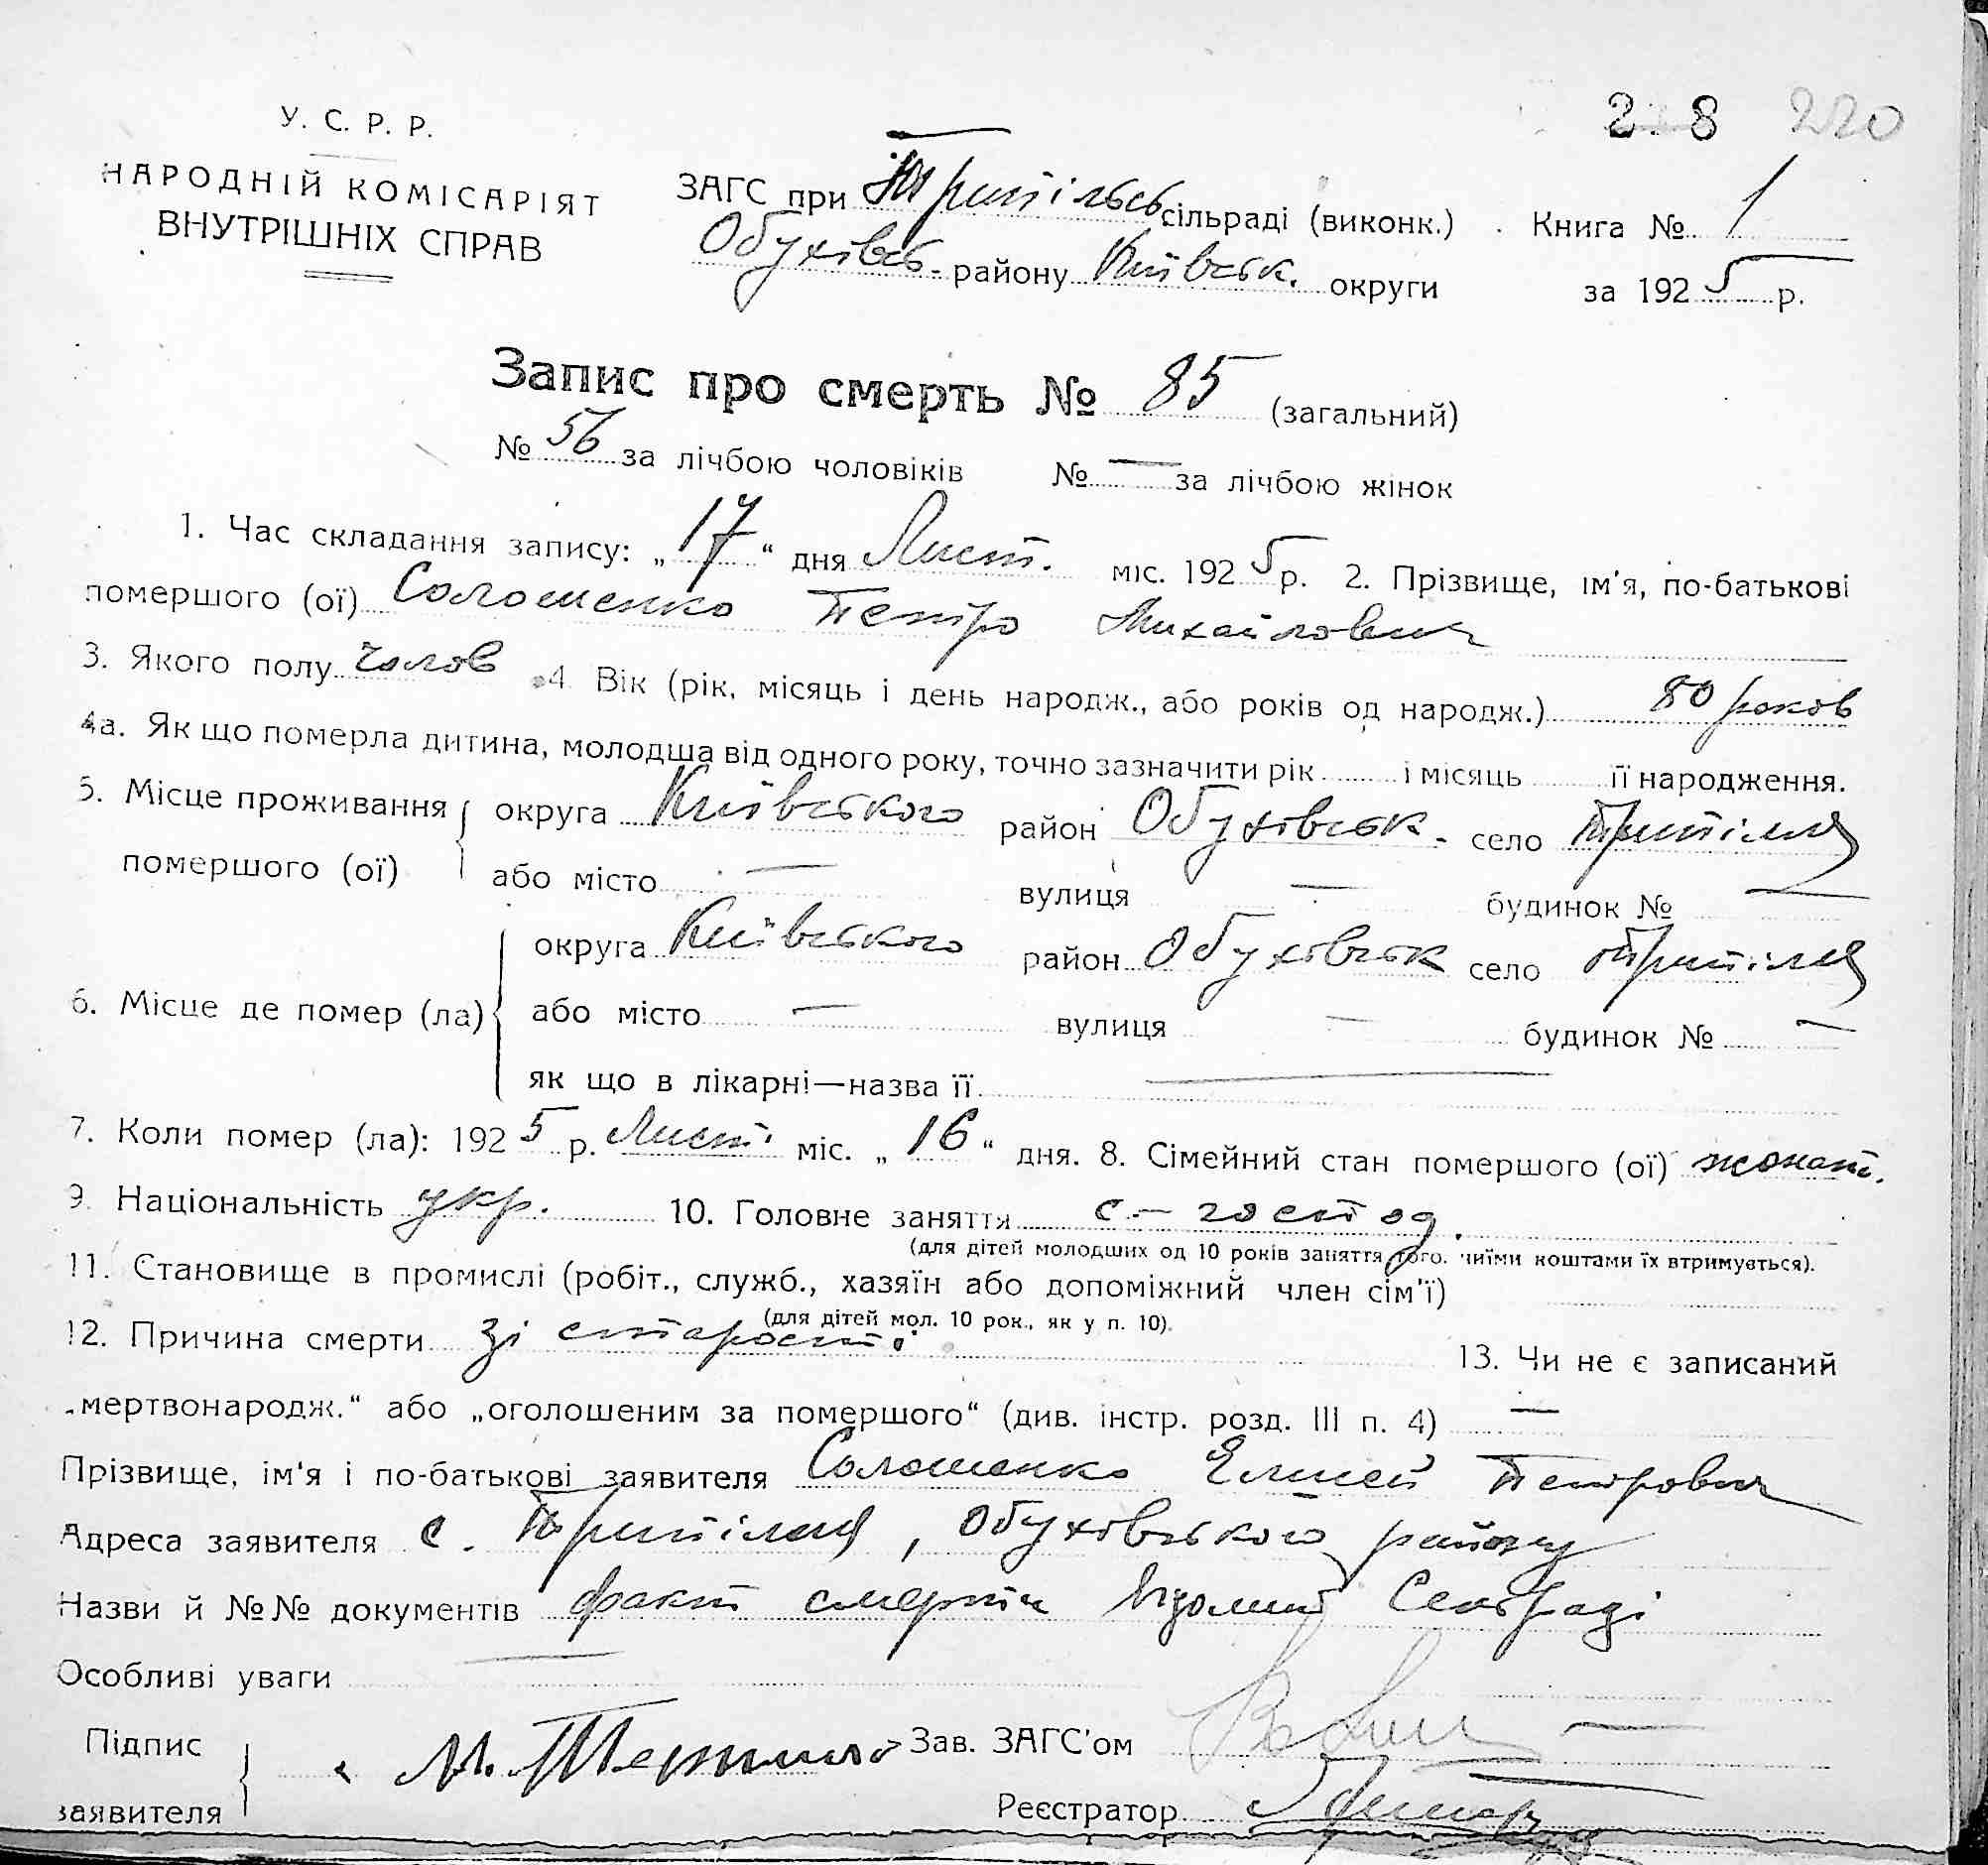 2 8 220
У. С. Р. Р.
НАРОДНІЙ КОМІСАРІЯТ
ВНУТРІШНІХ СПРАВ
ЗАГС при Трипільсь сільраді (виконк.) Книга № 1
Обухівсь. району Київськ. округи за 1925 р.
Запис про смерть № 85 (загальний)
№ 56 за лічбою чоловіків № — за лічбою жінок
1. Час складання запису: „17“ дня Лист. міс. 1925 р. 2. Прізвище, ім'я, по-батькові
помершого (ої) Соломенко Петро Михайлович
3. Якого полу чолов 4. Вік (рік, місяць і день народж., або років од народж.) 80 роков
4а. Як що померла дитина, молодша від одного року, точно зазначити рік і місяць її народження.
5. Місце проживання помершого (ої) округа Київського район Обухівськ. село Трипілля
або місто — вулиця — будинок № —
6. Місце де помер (ла) округа Київського район Обухівськ село Трипілля
або місто — вулиця — будинок № —
як що в лікарні—назва її —
7. Коли помер (ла): 1925 р. Лист. міс. „16“ дня. 8. Сімейний стан помершого (ої) жонат.
9. Національність укр. 10. Головне заняття с.-господ.
(для дітей молодших од 10 років заняття того, чиїми коштами їх втримується).
11. Становище в промислі (робіт., служб., хазяїн або допоміжний член сім'ї)
(для дітей мол. 10 рок., як у п. 10).
12. Причина смерти зі старості 13. Чи не є записаний
„мертвонародж.“ або „оголошеним за помершого“ (див. інстр. розд. III п. 4) —
Прізвище, ім'я і по-батькові заявителя Соломенко Елисей Петрович
Адреса заявителя с. Трипілля, Обухівського району
Назви й №№ документів факт смерти відомий Сельраді
Особливі уваги —
Підпис заявителя М. Зав. ЗАГС'ом
Реєстратор